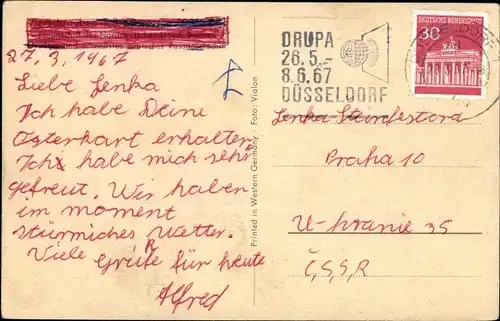 27.3.1967
Liebe Jenka
Ich habe Deine
Osterkart erhalten
Ich habe mich sehr
gefreut. Wir haben
im moment
stürmiches Wetter.
Viele Grüße für heute
Alfred
Printed in Western Germany · Foto: Violon
DRUPA
26.5.-
8.6.67
DÜSSELDORF
30
DEUTSCHE BUNDESPOST
Jenka
Praha 10
U-hranie 35
Č.S.S.R